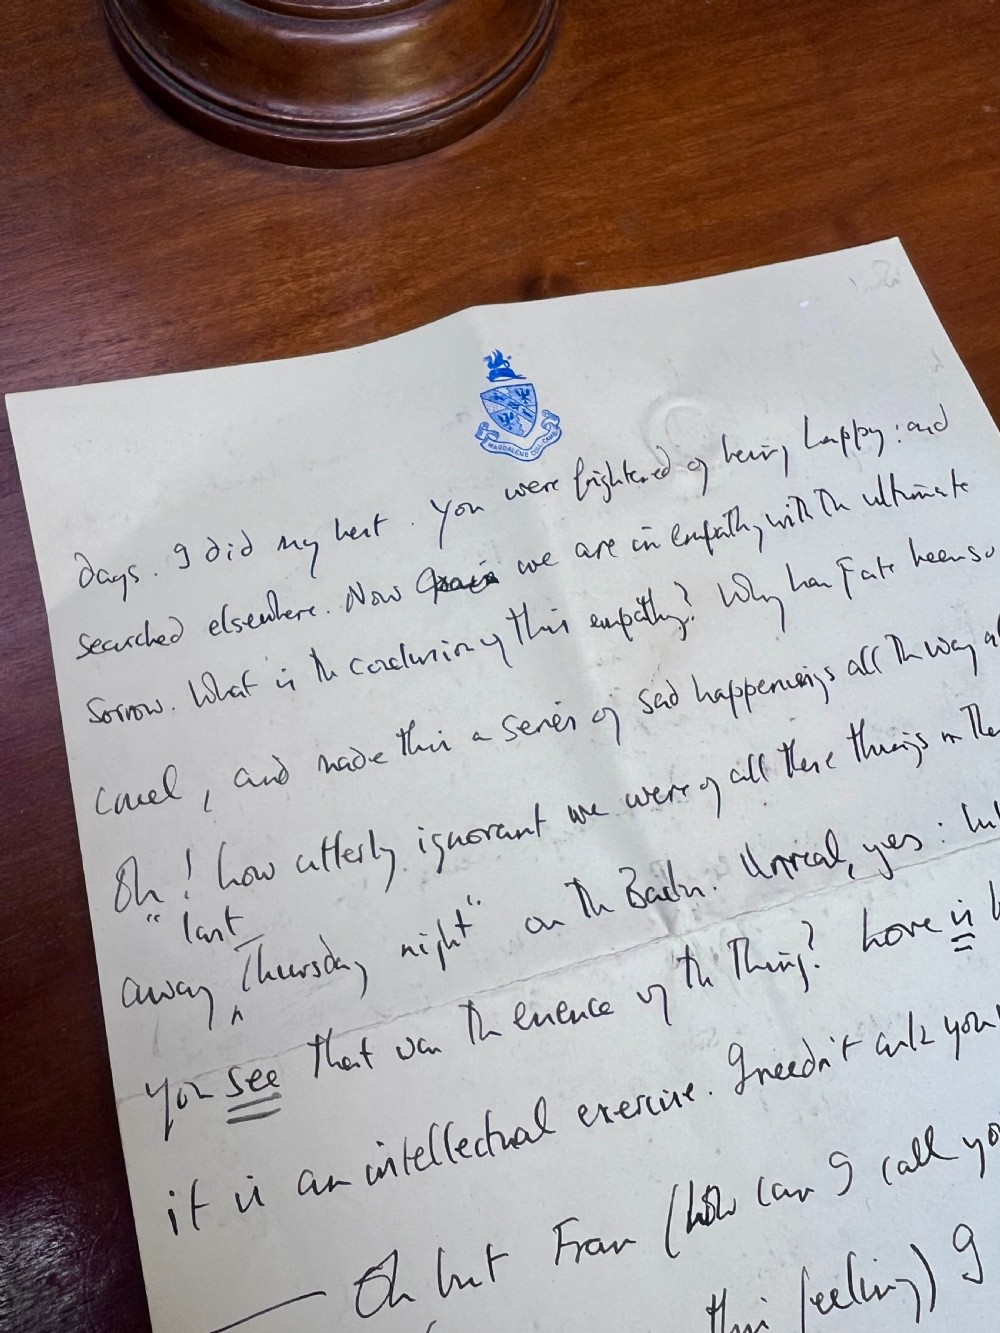 MAGDALENE COLL: CAMB:
days. I did my best. You were frightened of being happy: and
searched elsewhere. Now we are in empathy with the ultimate
sorrow. What is the conclusion of this empathy? Why has Fate been so
cruel, and made this a series of sad happenings all the way
Oh! how utterly ignorant we were of all these things in
away "last" Thursday night" on the Backs. Unreal, yes:
you see that was the essence of the Thing? Love is
it is an intellectual exercise. I needn't ask you
Oh but Fran (how can I call
this feeling) I